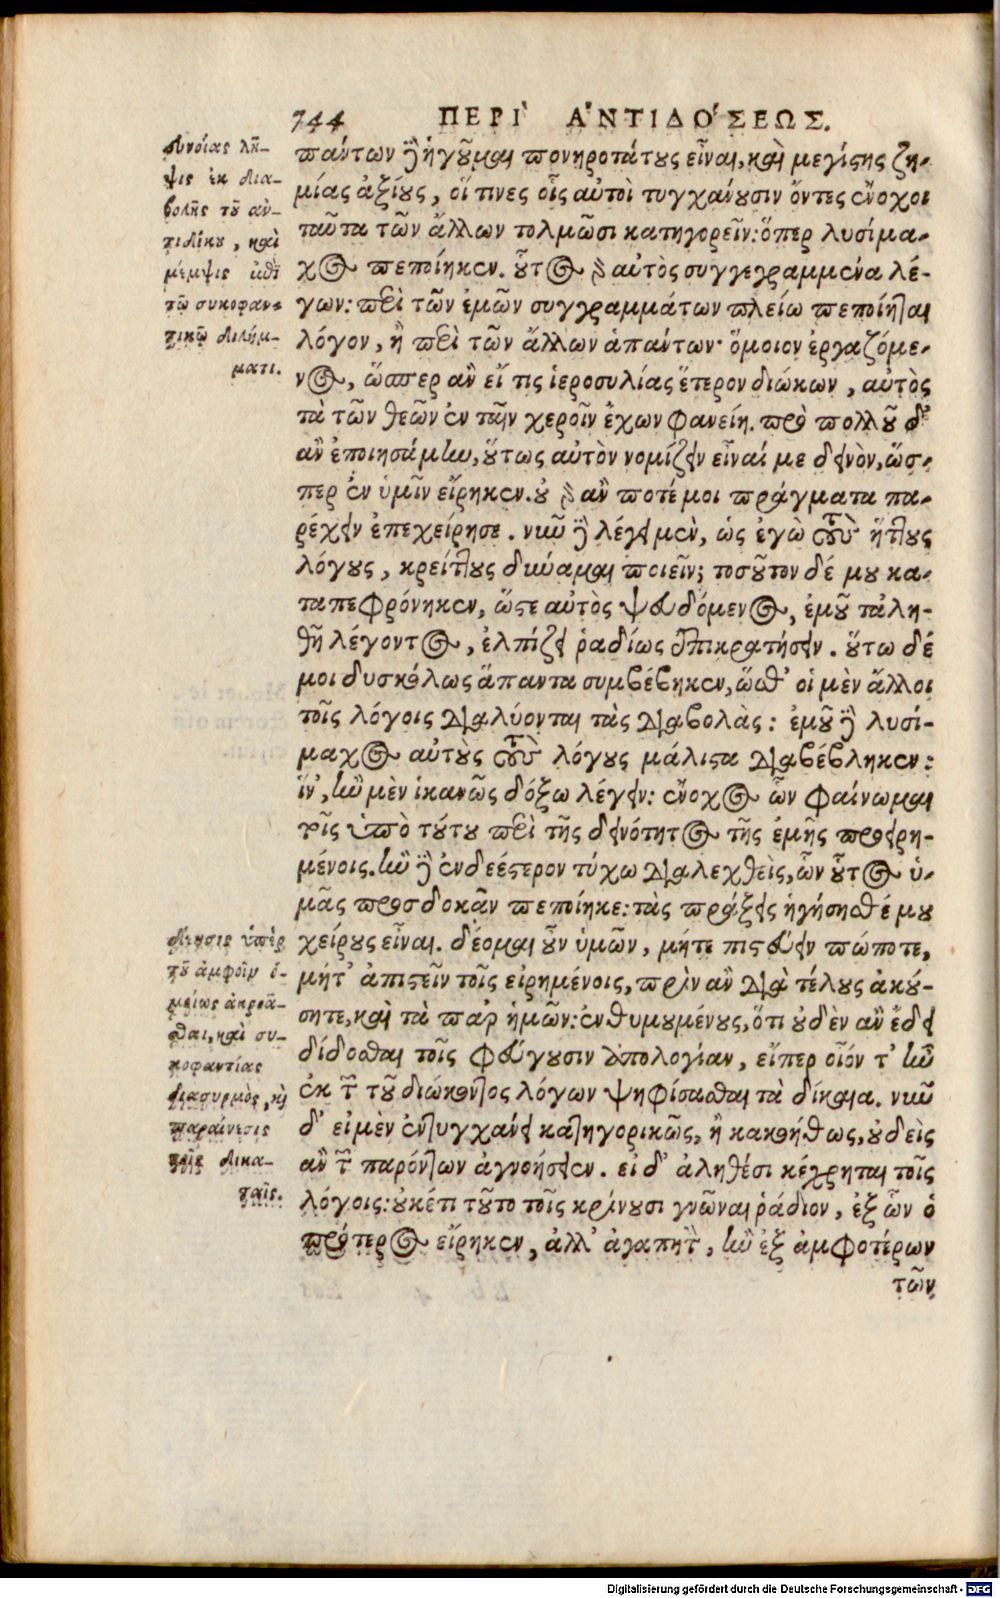 744 ΠΕΡΙ' ΑΝΤΙΔΟ'ΣΕΩΣ.
πάντων δὲ ἡγοῦμαι πονηροτάτους εἶναι, καὶ μεγίστης ζη-
μίας ἀξίους, οἵ τινες οἷς αὐτοὶ τυγχάνουσιν ὄντες ἔνοχοι
ταῦτα τῶν ἄλλων τολμῶσι κατηγορεῖν: ὅπερ λυσίμα-
χος πεποίηκεν. οὗτος γὰρ αὐτὸς συγγεγραμμένα λέ-
γων: περὶ τῶν ἐμῶν συγγραμμάτων πλείω πεποίηται
λόγον, ἢ περὶ τῶν ἄλλων ἁπάντων· ὅμοιον ἐργαζόμε-
νος, ὥσπερ ἂν εἴ τις ἱεροσυλίας ἕτερον διώκων, αὐτὸς
τὰ τῶν θεῶν ἐν ταῖν χεροῖν ἔχων φανείη. πρὸ πολλοῦ δ'
ἂν ἐποιησάμην, οὕτως αὐτὸν νομίζειν εἶναί με δεινὸν, ὥσ-
περ ἐν ὑμῖν εἴρηκεν. οὐ γὰρ ἂν ποτέ μοι πράγματα πα-
ρέχειν ἐπεχείρησε. νῦν δὲ λέγει μὲν, ὡς ἐγὼ τοὺς ἥττους
λόγους, κρείττους δύναμαι ποιεῖν; τοσοῦτον δέ μου κα-
ταπεφρόνηκεν, ὥστε αὐτὸς ψευδόμενος, ἐμοῦ τἀλη-
θῆ λέγοντος, ἐλπίζει ῥαδίως ἐπικρατήσειν. οὕτω δέ
μοι δυσκόλως ἅπαντα συμβέβηκεν, ὥσθ' οἱ μὲν ἄλλοι
τοῖς λόγοις διαλύονται τὰς διαβολὰς: ἐμοῦ δὲ λυσί-
μαχος αὐτοὺς τοὺς λόγους μάλιστα διαβέβληκεν:
ἵν', ἢν μὲν ἱκανῶς δόξω λέγειν: ἔνοχος ὢν φαίνωμαι
τοῖς ὑπὸ τούτου περὶ τῆς δεινότητος τῆς ἐμῆς προειρη-
μένοις. ἢν δὲ ἐνδεέστερον τύχω διαλεχθεὶς, ὧν οὗτος ὑ-
μᾶς προσδοκᾶν πεποίηκε: τὰς πράξεις ἡγήσησθέ μου
χείρους εἶναι. δέομαι οὖν ὑμῶν, μήτε πιστεύειν πώποτε,
μήτ' ἀπιστεῖν τοῖς εἰρημένοις, πρὶν ἂν διὰ τέλους ἀκού-
σητε, καὶ τὰ παρ ἡμῶν: ἐνθυμουμένους, ὅτι οὐδὲν ἂν ἔδει
δίδοσθαι τοῖς φεύγουσιν ἀπολογίαν, εἴπερ οἷόν τ' ἦν
ἐκ τῶν τοῦ διώκοντος λόγων ψηφίσασθαι τὰ δίκαια. νῦν
δ' εἰ μὲν ἐντυγχάνει κατηγορικῶς, ἢ κακοήθως, οὐδεὶς
ἂν τῶν παρόντων ἀγνοήσειεν. εἰ δ' ἀληθέσι κέχρηται τοῖς
λόγοις: οὐκέτι τοῦτο τοῖς κρίνουσι γνῶναι ῥάδιον, ἐξ ὧν ὁ
πρότερος εἴρηκεν, ἀλλ' ἀγαπητὸν, ἢν ἐξ ἀμφοτέρων
τῶν
εὐνοίας λῆ-
ψις ἐκ δια-
βολῆς τοῦ ἀν-
τιδίκου, καὶ
μέμψις ἐπὶ
τῷ συκοφαν-
τικῷ διλήμ-
ματι.
δέησις ὑπὲρ
τοῦ ἀμφοῖν ὁ-
μοίως ἀκροᾶ-
σθαι, καὶ συ-
κοφαντίας
διασυρμὸς, καὶ
παραίνεσις
τοῖς δικα-
ταῖς.
Digitalisierung gefördert durch die Deutsche Forschungsgemeinschaft - DFG